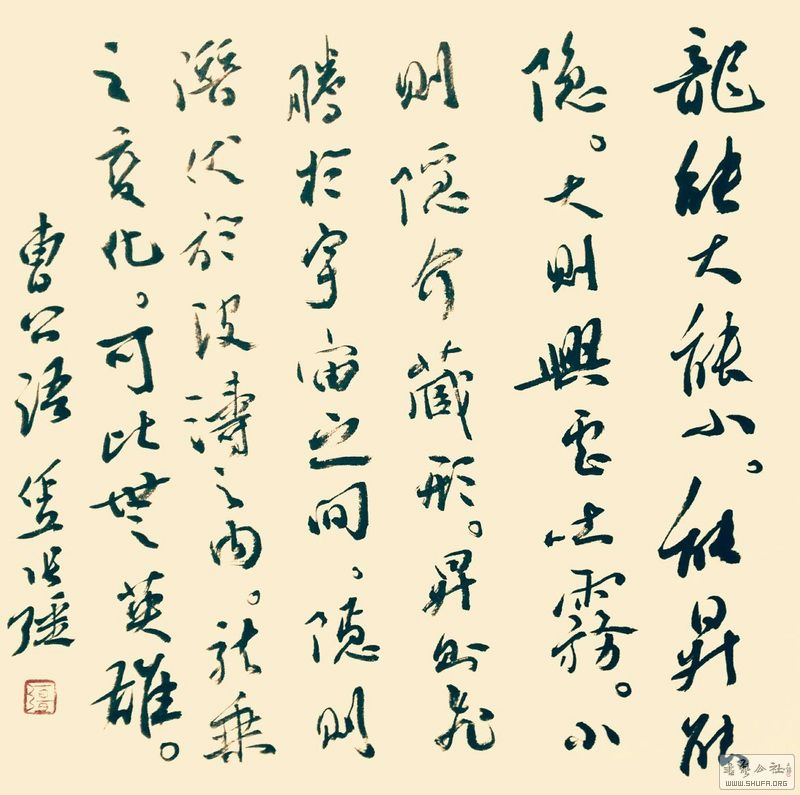 龍能大能小。能昇能
隐。大則興雲吐霧。小
則隱介藏形。昇則飛
騰於宇宙之间。隐則
潛伏於波濤之内。龙乘
之变化。可比世之英雄。
曹公語
WWW.SHUFA.ORG